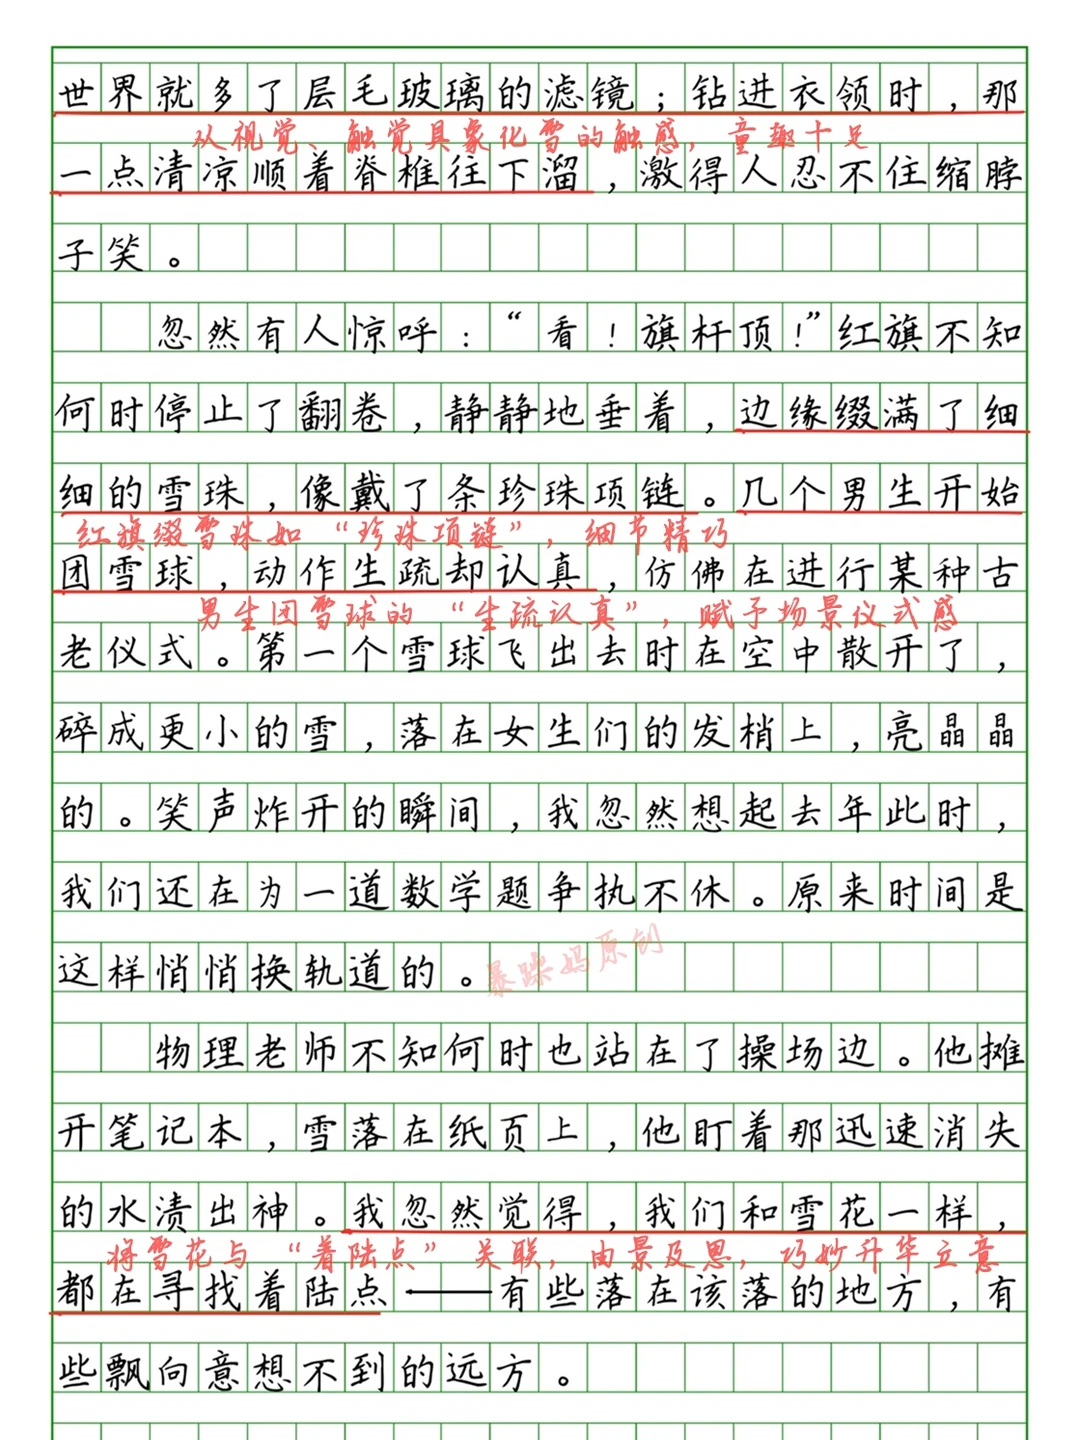 世界就多了层毛玻璃的滤镜；钻进衣领时，那
从视觉、触觉具象化雪的触感，童趣十足
一点清凉顺着脊椎往下溜，激得人忍不住缩脖
子笑。
忽然有人惊呼：“看！旗杆顶！”红旗不知
何时停止了翻卷，静静地垂着，边缘缀满了细
细的雪珠，像戴了条珍珠项链。几个男生开始
红旗缀雪珠如“珍珠项链”，细节精巧
团雪球，动作生疏却认真，仿佛在进行某种古
男生团雪球的“生疏认真”，赋予场景仪式感
老仪式。第一个雪球飞出去时在空中散开了，
碎成更小的雪，落在女生们的发梢上，亮晶晶
的。笑声炸开的瞬间，我忽然想起去年此时，
我们还在为一道数学题争执不休。原来时间是
这样悄悄换轨道的。
暴躁妈原创
物理老师不知何时也站在了操场边。他摊
开笔记本，雪落在纸页上，他盯着那迅速消失
的水渍出神。我忽然觉得，我们和雪花一样，
将雪花与“着陆点”关联，由景及思，巧妙升华立意
都在寻找着陆点——有些落在该落的地方，有
些飘向意想不到的远方。